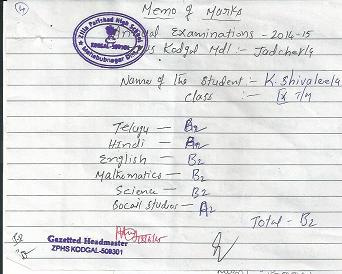 4
Memo of Marks
Zilla Parishad High School
KODGAL-509301
Mahabubnagar Dist
Annual Examinations - 2014-15
Kodgal Mdl :- Jadcherla
Name of the Student :- K. Shivaleela
Class :- IX T/M
Telugu — B2
Hindi — B2
English — B2
Mathematics — B2
Science — B2
Socail Studies — A2
Total - B2
Gazetted Headmaster
ZPHS KODGAL-509301